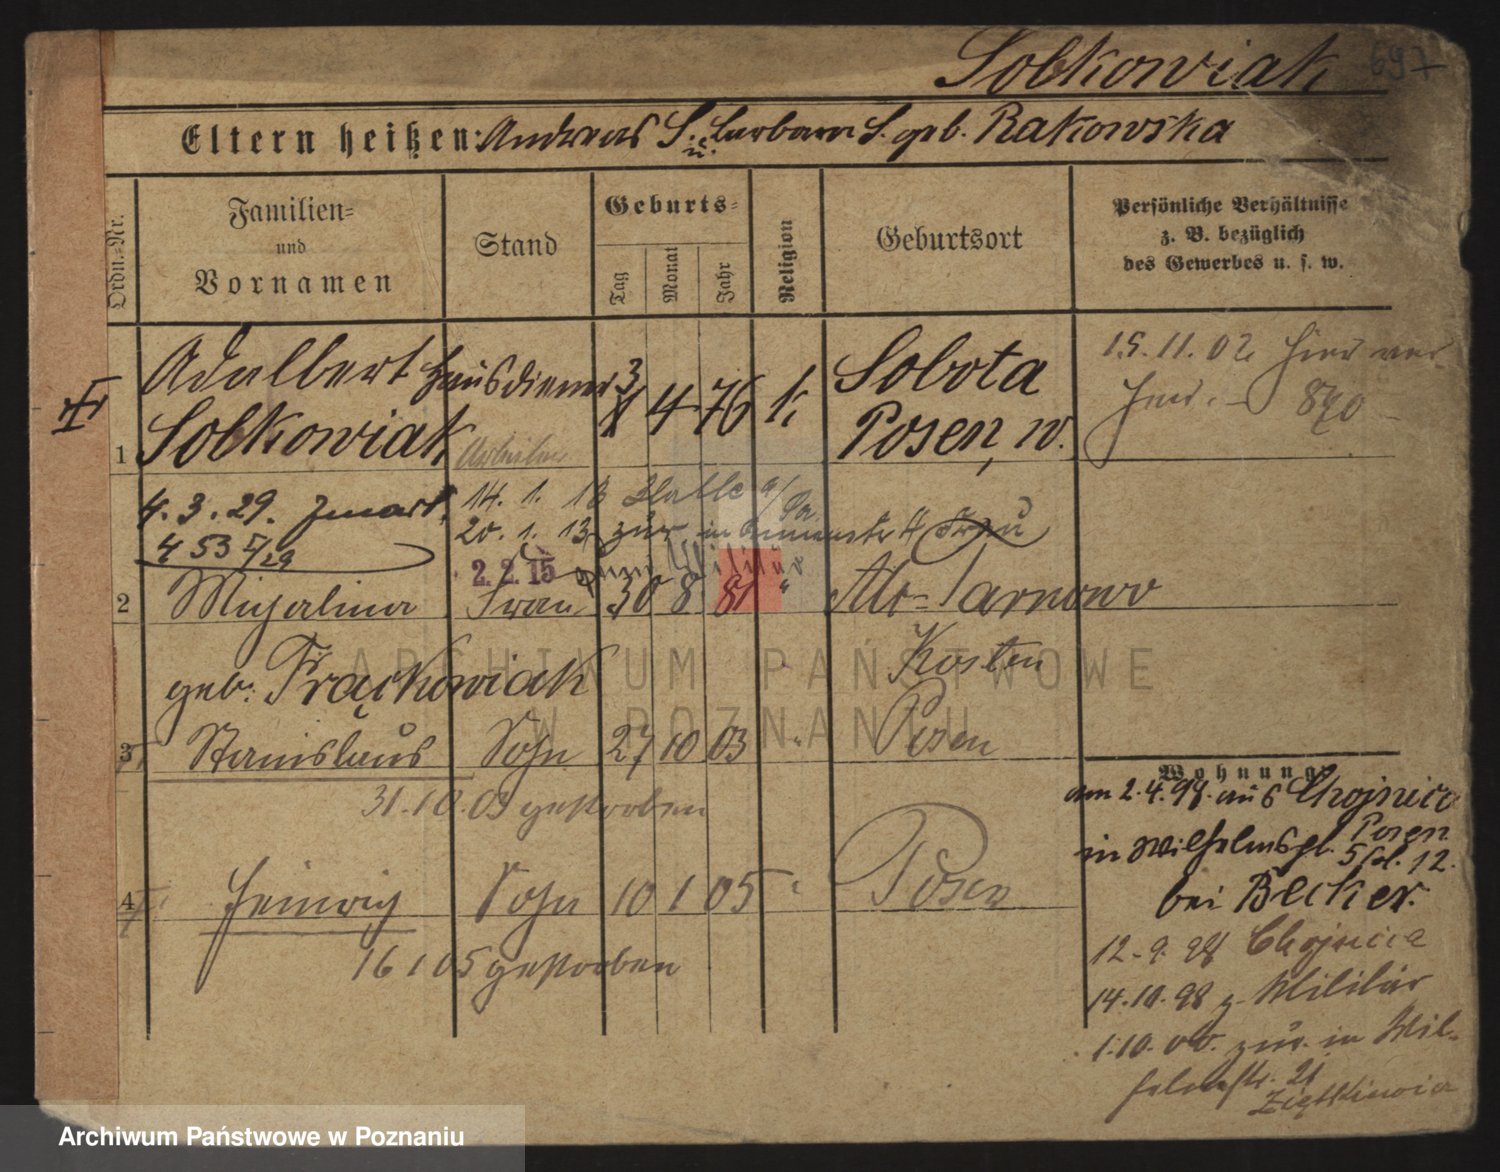 Sobkowiak 697
Eltern heißen: Andreas S. u. Barbara S. geb. Rakowska
Ordn.-Nr.
Familien-
und
Vornamen
Stand
Geburts-
Tag
Monat
Jahr
Religion
Geburtsort
Persönliche Verhältnisse
z. B. bezüglich
des Gewerbes u. s. w.
1
Adalbert
Sobkowiak
Hausdiener
Arbeiter
3 4 76 k.
Sobota
Posen, W.
15.11.02 hier
890
4.3.29.
453 5/29
14. 1. 13 Halle a/
20. 1. 13 zur. in
2. 2. 15 zum Militär
2
Michalina
Frau
30 8 81 "
Alt-Tarnowo
Kosten
geb. Frąckowiak
3
Stanislaus
Sohn
27 10 03 "
Posen
31.10.03 gestorben
4
Heinrich
Sohn
10 1 05 "
Posen
16 1 05 gestorben
Wohnung
am 2.4.98. aus Chojnica
Posen
in Wilhelmspl. 12.
bei Becker.
12.9.98 Chojnica
14.10.98 z. Militär
1.10.00. zur. in Wil-
helmstr. 21
ARCHIWUM PAŃSTWOWE
W POZNANIU
Archiwum Państwowe w Poznaniu